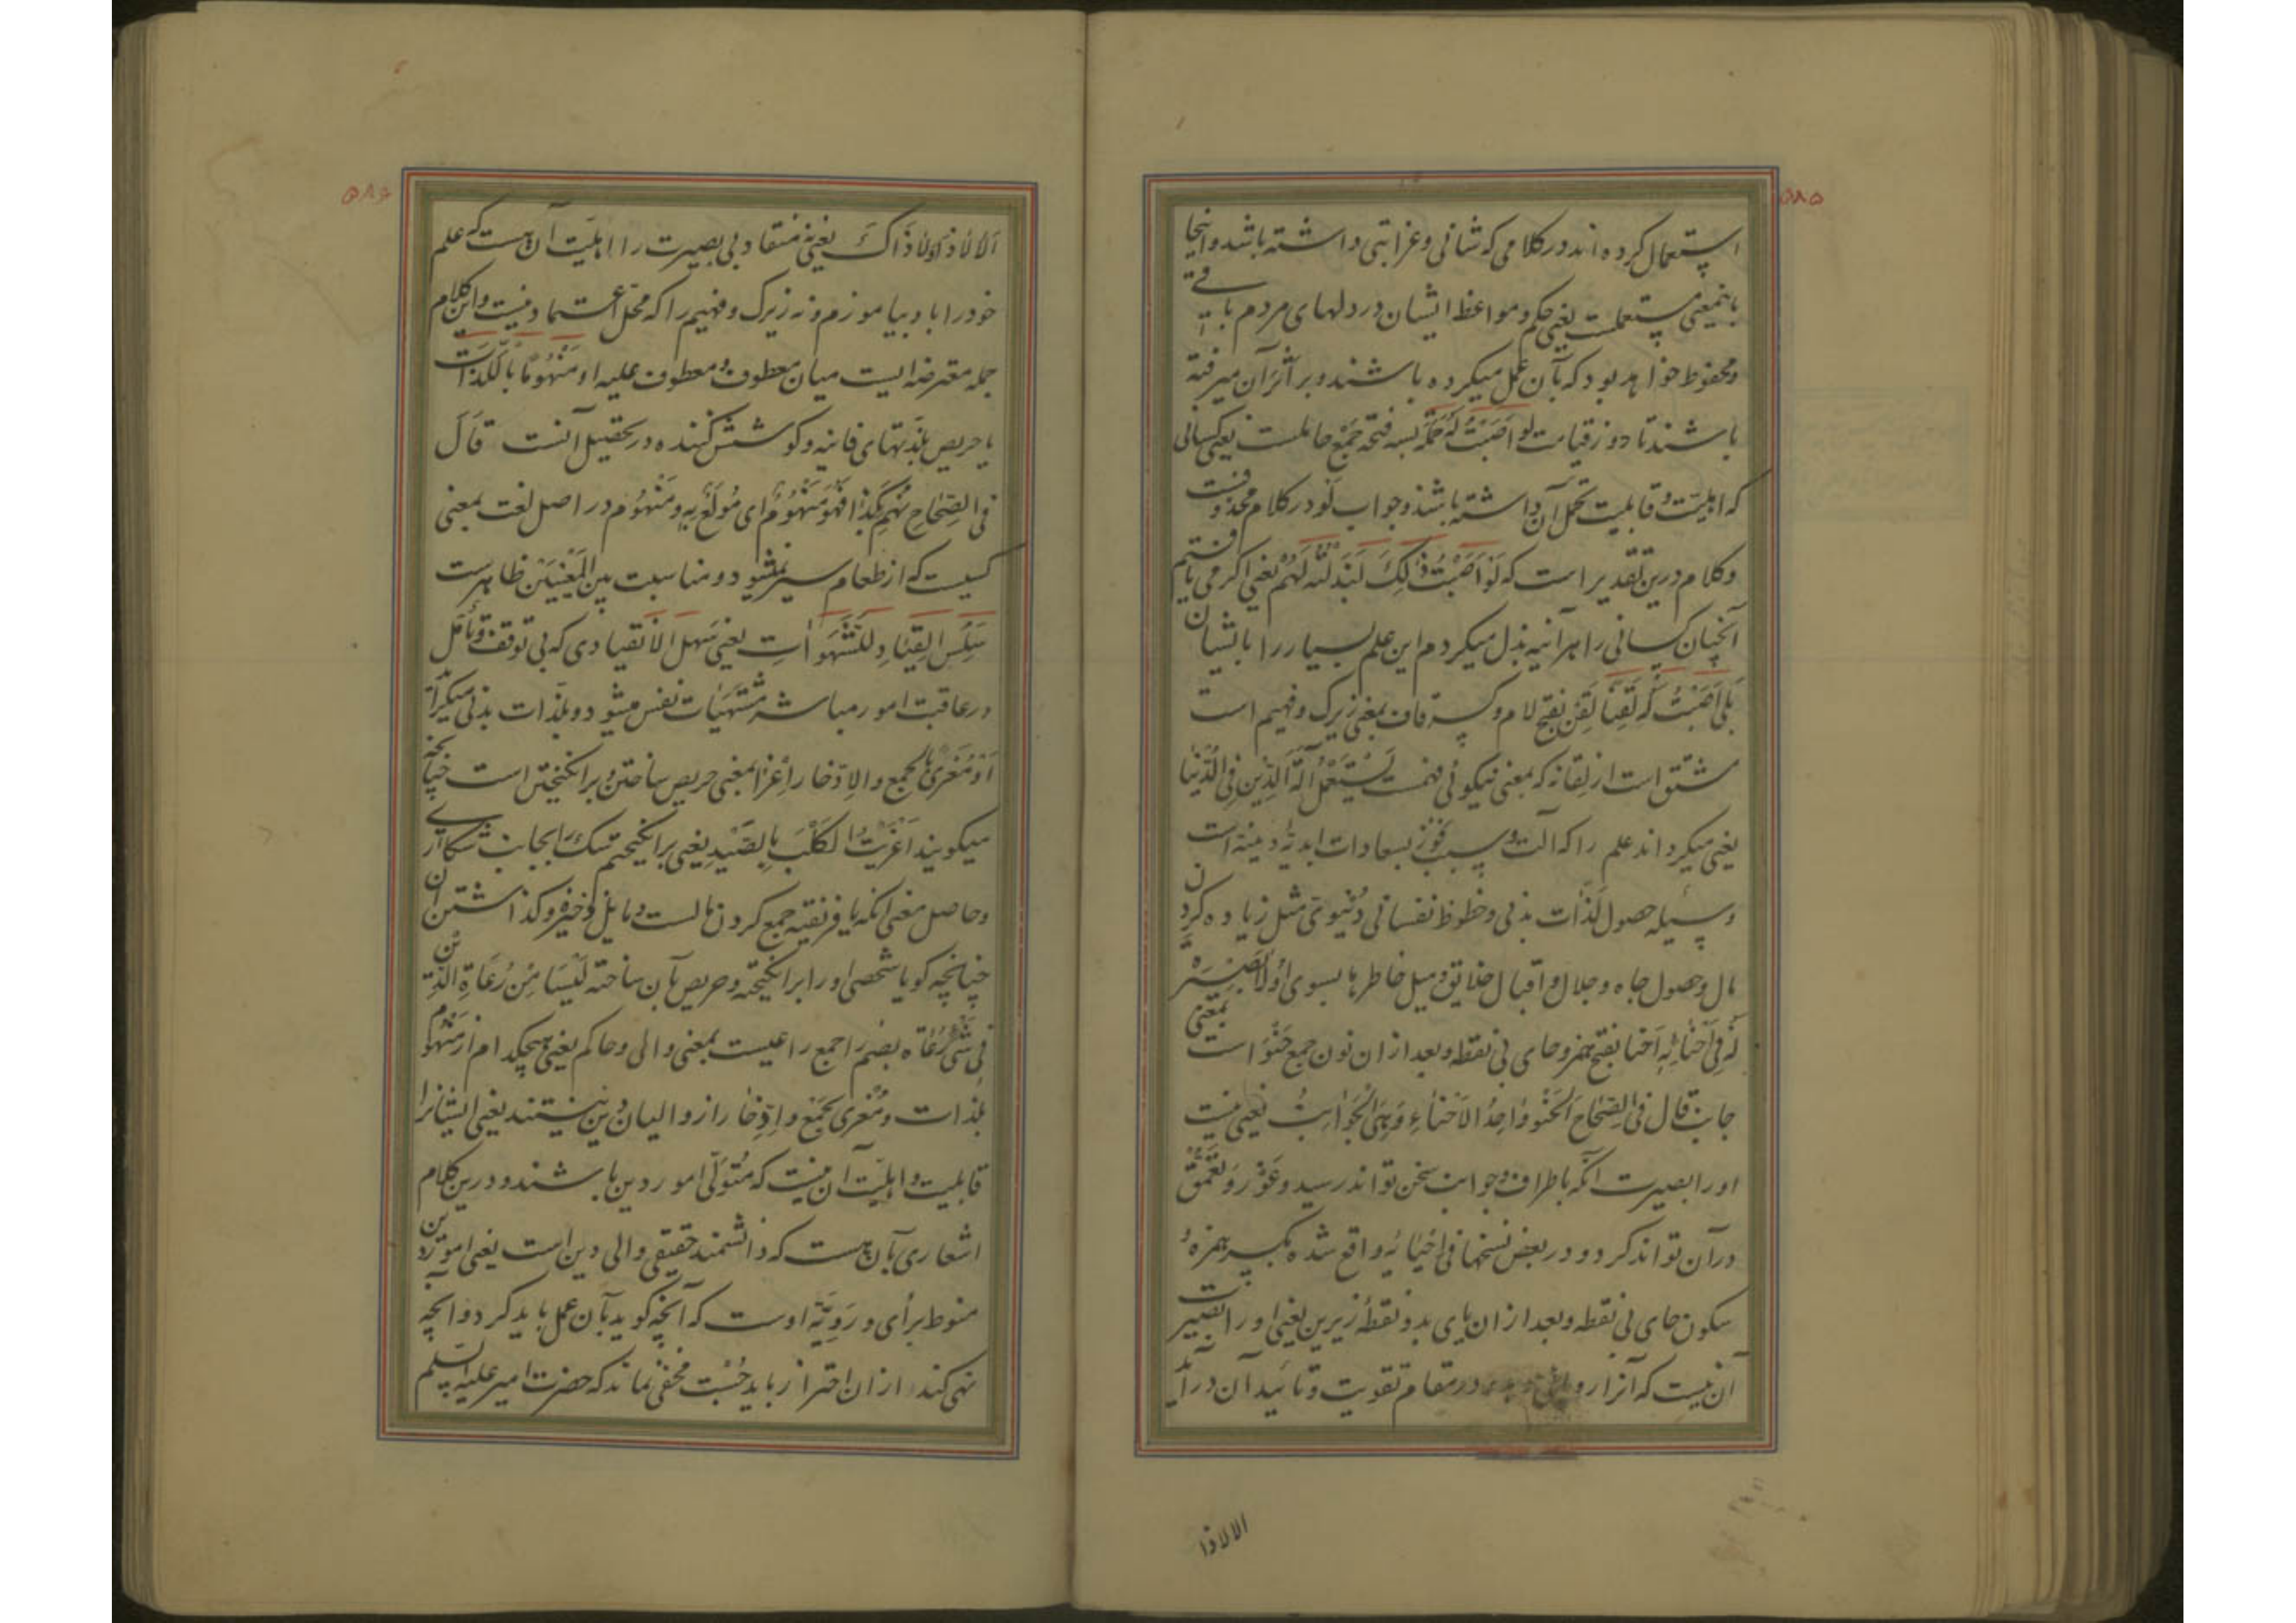 ۵۸۵
استعمال کرده اند در کلامی که شانی و غرابتی داشته باشد و اینجا
باینمعنی مستعملست یعنی حکم و مواعظ ایشان در دلهای مردم باقی
و محفوظ خواهد بود که بآن عمل میکرده باشند و بر اثر آن میرفته
باشند تا روز قیامت لو اَصَبْتُ لَهُ حَمَلَةً بسه فتحه جمع حاملست یعنی کسانی
که اهلیت و قابلیت تحمل آن داشته باشند و جواب لَوْ در کلام محذوفست
و کلام درین تقدیر است که لَوْ اَصَبْتُ ذٰلِکَ لَبَذَلْتُهُ لَهُمْ یعنی اکر می یافتیم
آنچنان کسانی را هرآینه بذل میکردم این علم بسیار را بایشان
بَلٰی اَصَبْتُ لَهُ لَقِنًا لَقِن بفتح لام و کسر قاف بمعنی زیرک و فهیم است
مشتق است از لِقانه که بمعنی نیکوئی فهمست یَسْتَعْمِلُ آلَةَ الدّینِ فِی الدُّنْیا
یعنی میکرداند علم را که آلت و سبب فَوْز بسعادات ابدیّه دینیّه است
وسیله حصول لَذّات بدنی و حظوظ نفسانی دُنْیوی مثل زیاده کردن
مال و حصول جاه و جلال و اقبال خلایق و میل خاطرها بسوی او لا بَصیرَة
لَهُ فی اَحْنائِهِ اَحنا بفتح همزه و حای بی نقطه و بعد از ان نون جمع حَنْوْ است بمعنی
جانب قال فی الصِحاح اَلحَنْو واحِدُ الاَحْناءِ وَ هِیَ الجَوانِبُ یعنی نیست
او را بصیرت آنکه باطراف و جوانب سخن تواند رسید و غَوْر و تَعَمُّق
در آن تواند کرد و در بعض نسخها فی اِحْیائِه واقع شده بکسر همزه و
سکون حای بی نقطه و بعد از ان یای بدو نقطهٔ زیرین یعنی او را بصیرت
آن نیست که آنرا در مقام تقویت و تائید آن درآید
الالاذا
۵۸۶
اَلا لا ذا وَ لا ذاکَ یعنی نه منقاد بی بصیرت را اهلیت آن هست که علم
خود را باو بیاموزم و نه زیرک و فهیم را که محل اعتماد نیست و این کلام
جمله معترضه ایست میان معطوف و معطوف علیه او مَنْهُومًا بِاللَّذّاتِ
یا حریص بلذّتهای فانیه و کوشش کننده در تحصیل آنست قالَ
فی الصِحاحِ نُهِمَ بِکَذا فَهُوَ مَنْهُومٌ ای مُولَعٌ بِهِ و مَنْهُوم در اصل لغت بمعنی
کسیست که از طعام سیر نمیشود و مناسبت بین المَعْنَیَیْن ظاهرست
سَلِسَ القِیٰادِ لِلشَّهَواتِ یعنی سَهل الانقیادی که بی توقف و تأمل
در عاقبت امور مباشر مُشْتَهَیات نفس میشود و بلذات بدنی میکراید
اَوْ مُغْرًی بِالجَمْعِ والاِدّخار اِغْرا بمعنی حریص ساختن و برانکیختن است چنانچه
میکویند اَغْرَیْتُ الکَلْبَ بِالصَیْدِ یعنی برانکیختم سک را بجانب شکار
و حاصل معنی آنکه یا فریفته جمع کردن مالست و مایل ذخیره و کذاشتن آن
چنانچه کویا شخصی او را برانکیخته و حریص بآن ساخته لَیْسا مِنْ رُعاةِ الدّین
فی شَیْءٍ رُعاة بضم را جمع راعیست بمعنی والی و حاکم یعنی هیچکدام از مَنْهُوم
بلذات و مُغْری بجَمْع و اِدِّخار از والیان دین نیستند یعنی ایشانرا
قابلیت و اهلیّت آن نیست که مُتَوَلّی امور دین باشند و درین کلام
اشعاری بآن هست که دانشمند حقیقی والی دین است یعنی امور دین
منوط برأی و رَوِیّهٔ اوست که آنچه کوید بآن عمل باید کرد و از آنچه
نهی کند از ان احتراز باید جُسْت مخفی نماند که حضرت امیر علیه السلم